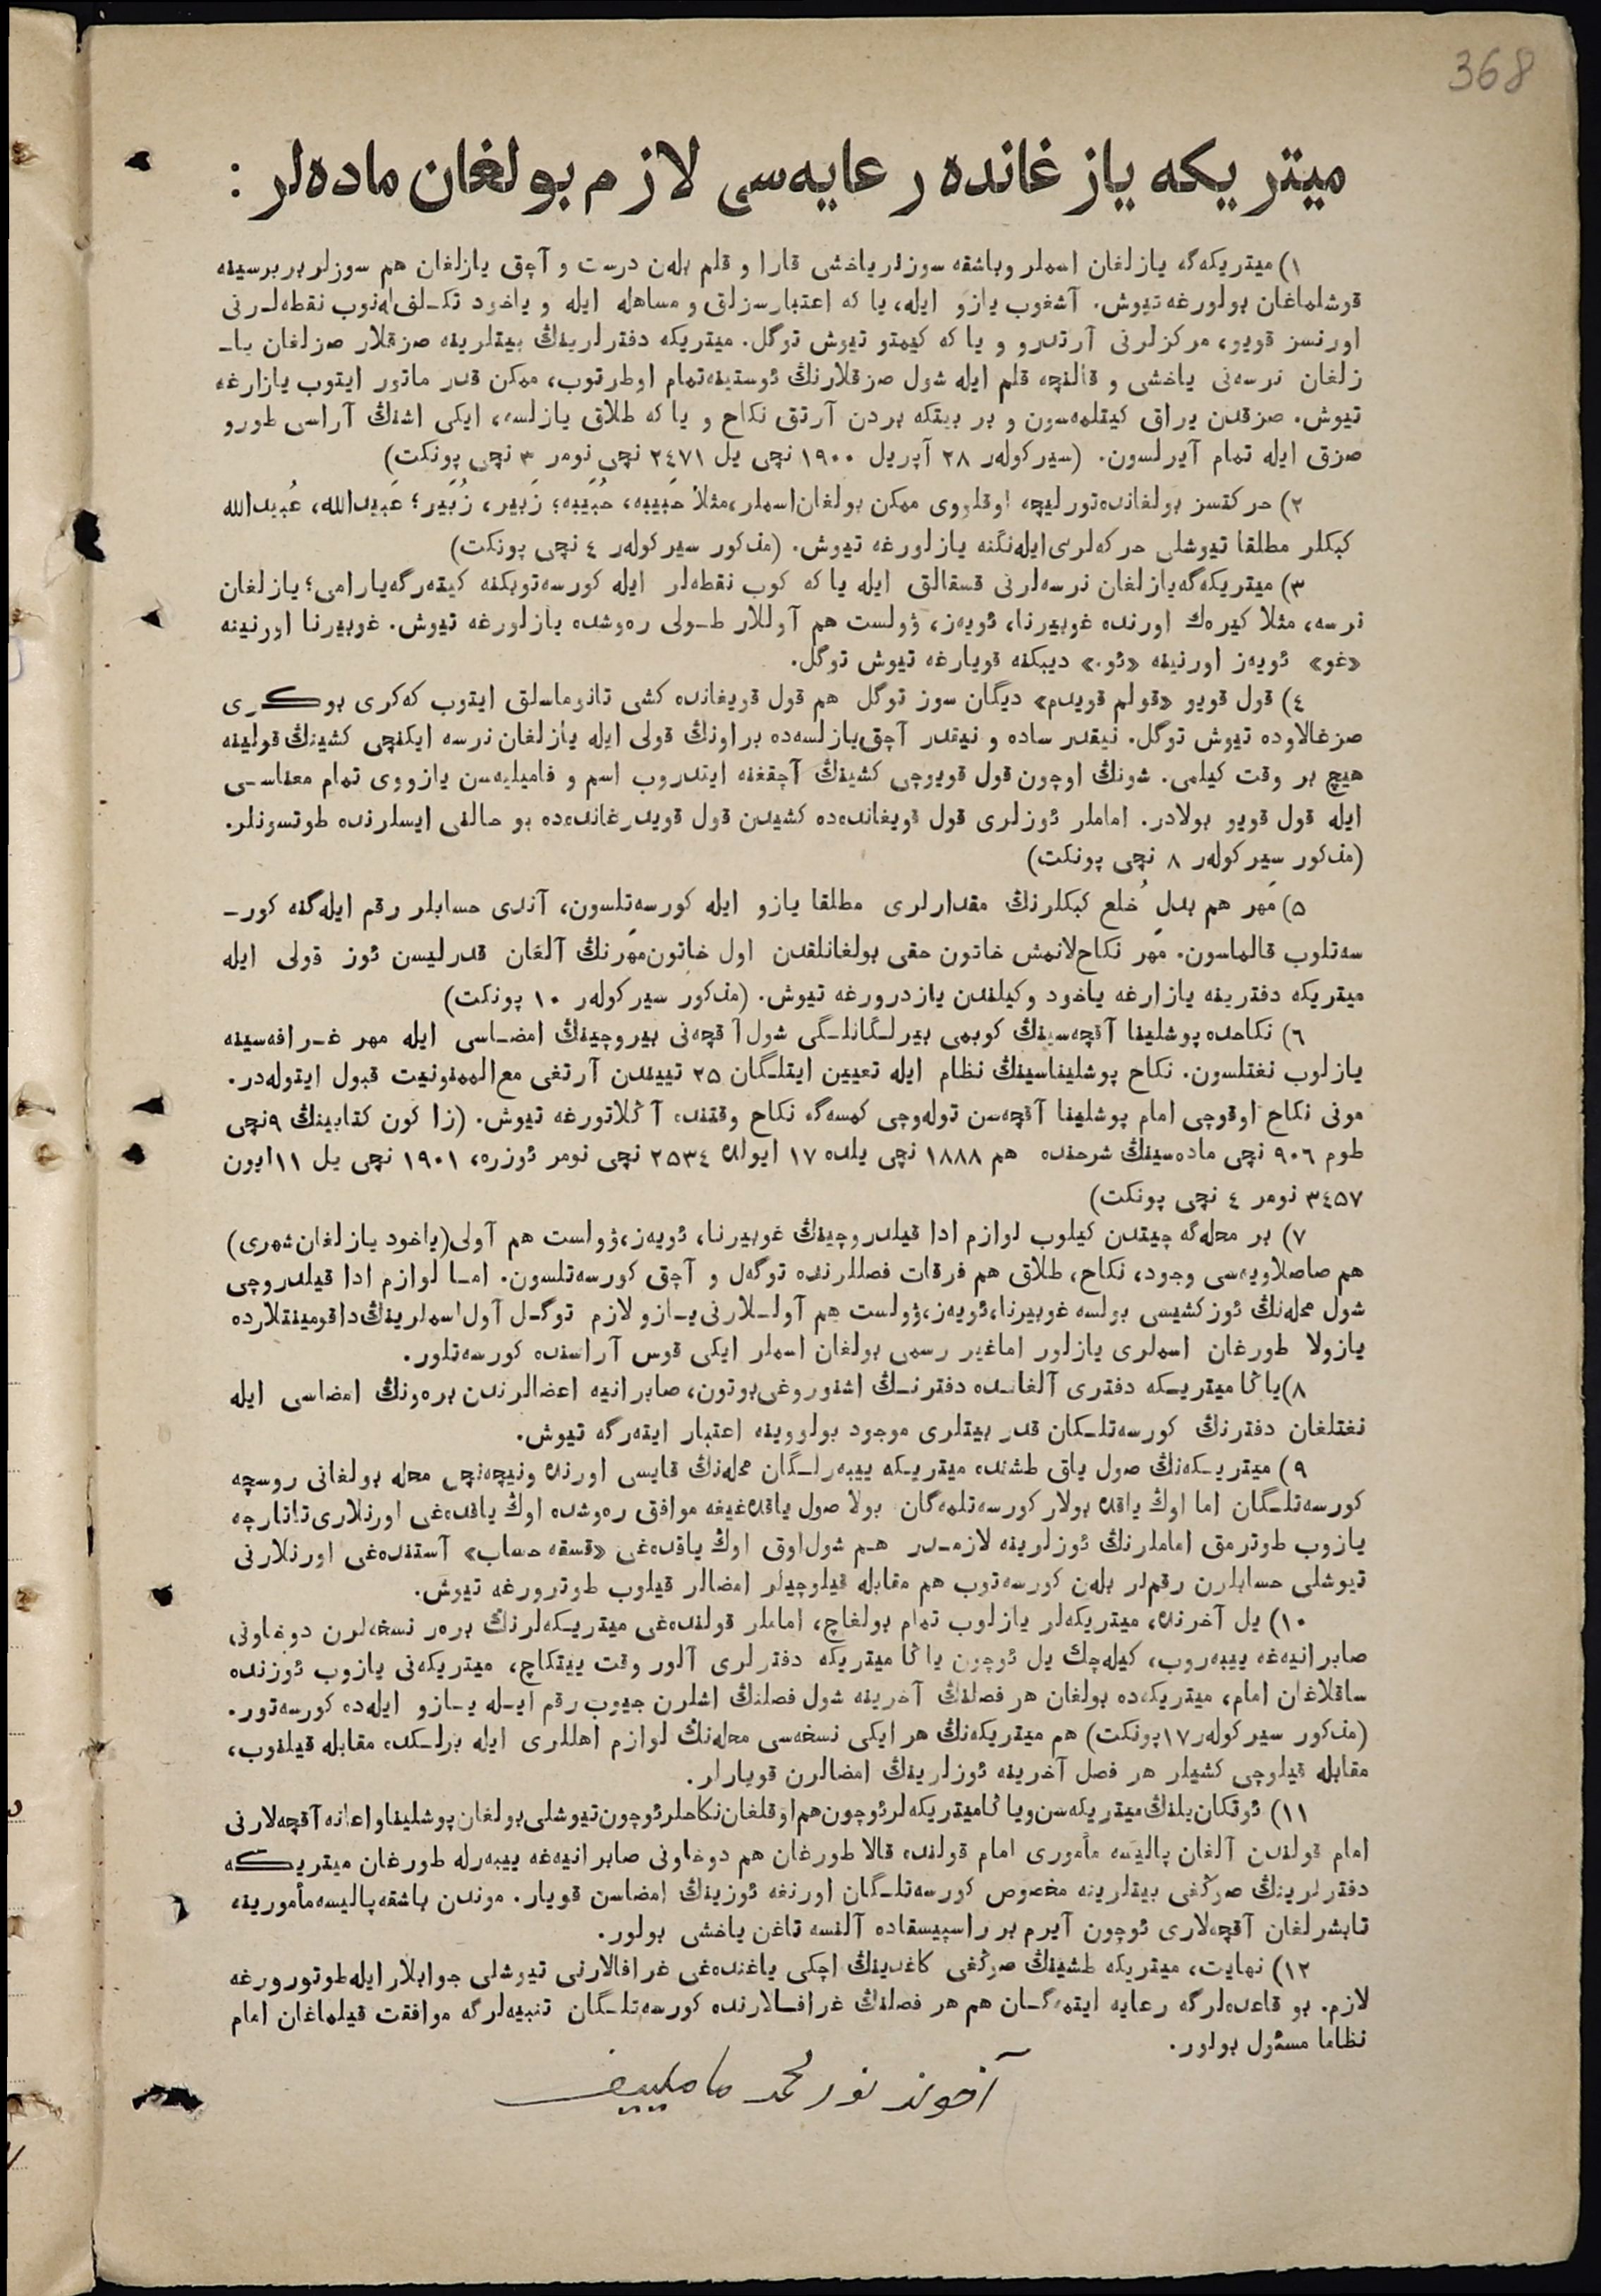 368
میتریکه یازغانده رعایه‌سی لازم بولغان ماده‌لر :
۱) میتریکه‌گه یازلغان اسملر وباشقه سوزلر یاخشی قارا و قلم بله‌ن درست و آچق یازلغان هم سوزلر بر برسینه
قوشلماغان بولورغه تیوش. آشغوب یازو ایله، یا که اعتبارسزلق و مساهله ایله و یاخود تکـلف له‌نوب نقطه‌لـرنی
اورنسز قویو، مرکزلرنی آرتدرو و یا که کیمتو تیوش توگل. میتریکه دفترلرینڭ بیتلرینه صزقلار صزلغان یاـ
زلغان نرسه‌نی یاخشی و قالنچه قلم ایله شول صزقلارنڭ ئوستینه تمام اوطرتوب، ممکن قدر ماتور ایتوب یازارغه
تیوش. صزقدن یراق کیتلمه‌سون و بر بیتکه بردن آرتق نکاح و یا که طلاق یازلسه، ایکی اشنڭ آراسی طورو
صزق ایله تمام آیرلسون. (سیرکوله‌ر ۲۸ آپریل ۱۹۰۰ نچی یل ۲٤۷۱ نچی نومر ۳ نچی پونکت)
۲) حرکتسز بولغانده تورلیچه اوقلووی ممکن بولغان اسملر، مثلا حَبیبه، حُبَیبه؛ زَبیر، زُبَیر؛ عَبیدالله، عُبیدالله
کبکلر مطلقا تیوشلی حرکه‌لری ایله‌نگنه یازلورغه تیوش. (مذکور سیرکوله‌ر ٤ نچی پونکت)
۳) میتریکه‌گه یازلغان نرسه‌لرنی قسقالق ایله یا که کوب نقطه‌لر ایله کورسه‌توبکنه کیته‌رگه یارامی؛ یازلغان
نرسه، مثلا کیره‌ك اورنده غوبیرنا، ئویه‌ز، ۋولست هم آوللار طـولی ره‌وشده یازلورغه تیوش. غوبیرنا اورنینه
«غو» ئویه‌ز اورنینه «ئو.» دیبکنه قویارغه تیوش توگل.
٤) قول قویو «قولم قویدم» دیگان سوز توگل هم قول قویغانده کشی تانوماسلق ایتوب که‌کری بوکـری
صزغالاوده تیوش توگل. نیقدر ساده و نیقدر آچق یازلسه‌ده براونڭ قولی ایله یازلغان نرسه ایکنچی کشینڭ قولینه
هیچ بر وقت کیلمی. شونڭ اوچون قول قویوچی کشینڭ آچقغنه ایتدروب اسم و فامیلیه‌سن یازووی تمام معناسـی
ایله قول قویو بولادر. اماملر ئوزلری قول قویغانده‌ده کشیدن قول قویدرغانده‌ده بو حالنی ایسلرنده طوتسونلر.
(مذکور سیرکوله‌ر ۸ نچی پونکت)
۵) مَهر هم بدلِ خُلع کبکلرنڭ مقدارلری مطلقا یازو ایله کورسه‌تلسون، آندی حسابلر رقم ایله‌گنه کورـ
سه‌تلوب قالماسون. مَهر نکاح‌لانمش خاتون حقی بولغانلقدن اول خاتون مَهرنڭ آلغان قدرلیسن ئوز قولی ایله
میتریکه دفترینه یازارغه یاخود وکیلندن یازدرورغه تیوش. (مذکور سیرکوله‌ر ۱۰ پونکت)
٦) نکاحده پوشلینا آقچه‌سینڭ کوبمی بیرلـگانلـگی شول آقچه‌نی بیروچینڭ امضـاسی ایله مهر غـرافه‌سینه
یازلوب نغتلسون. نکاح پوشلیناسینڭ نظام ایله تعیین ایتلـگان ۲۵ تییندن آرتغی مع‌الممنونیت قبول ایتوله‌در.
مونی نکاح اوقوچی امام پوشلینا آقچه‌سن توله‌وچی کمسه‌گه نکاح وقتنده آڭلاتورغه تیوش. (زاکون کتابینڭ ۹نچی
طوم ۹۰٦ نچی ماده‌سینڭ شرحنده هم ۱۸۸۸ نچی یلده ۱۷ ایولده ۲۵۳٤ نچی نومر ئوزره، ۱۹۰۱ نچی یل ۱۱ ایون
۳٤۵۷ نومر ٤ نچی پونکت)
۷) بر محله‌گه چیتدن کیلوب لوازم ادا قیلدروچینڭ غوبیرنا، ئویه‌ز، ۋولست هم آولی (یاخود یازلغان شهری)
هم صاصلاویه‌سی وجود، نکاح، طلاق هم فرقات فصللرنده توگه‌ل و آچق کورسه‌تلسون. امـا لوازم ادا قیلدروچی
شول محله‌نڭ ئوز کشیسی بولسه غوبیرنا، ئویه‌ز، ۋولست هم آولـلارنی یـازو لازم توگـل آول اسملرینڭ داقومینتلارده
یازولا طورغان اسملری یازلور اما غیر رسمی بولغان اسملر ایکی قوس آراسنده کورسه‌تلور.
۸) یاڭا میتریـکه دفتری آلغانـده دفترنـڭ اشنوروغی بوتون، صابرانیه اعضالرندن بره‌ونڭ امضاسی ایله
نغتلغان دفترنڭ کورسه‌تلـکان قدر بیتلری موجود بولووینه اعتبار ایته‌رگه تیوش.
۹) میتریـکه‌نڭ صول یاق طشنده میتریـکه ییبه‌رلـگان محله‌نڭ قایسی اورنده ونیچه‌نچی محله بولغانی روسچه
کورسه‌تلـگان اما اوڭ یاقده بولار کورسه‌تلمه‌گان بولا صول یاقده‌غیغه موافق ره‌وشده اوڭ یاقده‌غی اورنلاری تاتارچه
یازوب طوترمق اماملرنڭ ئوزلرینه لازمـدر هـم شول‌اوق اوڭ یاقده‌غی «قسقه حساب» آستنده‌غی اورنلارنی
تیوشلی حسابلرن رقملر بله‌ن کورسه‌توب هم مقابله قیلوچیلر امضالر قیلوب طوترورغه تیوش.
۱۰) یل آخرنده، میتریکه‌لر یازلوب تمام بولغاچ، اماملر قولنده‌غی میتریـکه‌لرنڭ بره‌ر نسخه‌لرن دوخاونی
صابرانیه‌غه ییبه‌روب، کیله‌چك یل ئوچون یاڭا میتریکه دفترلری آلور وقت ییتکاچ، میتریکه‌نی یازوب ئوزنده
ساقلاغان امام، میتریکه‌ده بولغان هر فصلنڭ آخرینه شول فصلنڭ اشلرن جیوب رقم ایـله یـازو ایله‌ده کورسه‌تور.
(مذکور سیرکوله‌ر ۱۷ پونکت) هم میتریکه‌نڭ هر ایکی نسخه‌سی محله‌نڭ لوازم اهللری ایله بَرلـکده مقابله قیلنوب،
مقابله قیلوچی کشیلر هر فصل آخرینه ئوزلرینڭ امضالرن قویارلر.
۱۱) ئوتکان یلنڭ میتریکه‌سن ویاڭا میتریکه‌لر ئوچون هم اوقلغان نکاحلر ئوچون تیوشلی بولغان پوشلینا و اعانه آقچه‌لارنی
امام قولندن آلغان پالیسه مأموری امام قولنده قالا طورغان هم دوخاونی صابرانیه‌غه ییبه‌رله طورغان میتریـکـه
دفترلرینڭ صوڭغی بیتلرینه مخصوص کورسه‌تلـگان اورنغه ئوزینڭ امضاسن قویار. موندن باشقه پالیسه مأمورینه
تابشرلغان آقچه‌لاری ئوچون آیرم بر راسپیسقاده آلنسه تاغن یاخشی بولور.
۱۲) نهایت، میتریکه طشینڭ صوڭغی کاغدینڭ اچکی یاغنده‌غی غرافالارنی تیوشلی جوابلار ایله طوتورورغه
لازم. بو قاعده‌لرگه رعایه ایتمه‌گـان هم هر فصلنڭ غرافـالارنده کورسه‌تلـگان تنبیه‌لرگه موافقت قیلماغان امام
نظاما مسئول بولور.
آخوند نورمحمد ماملییف